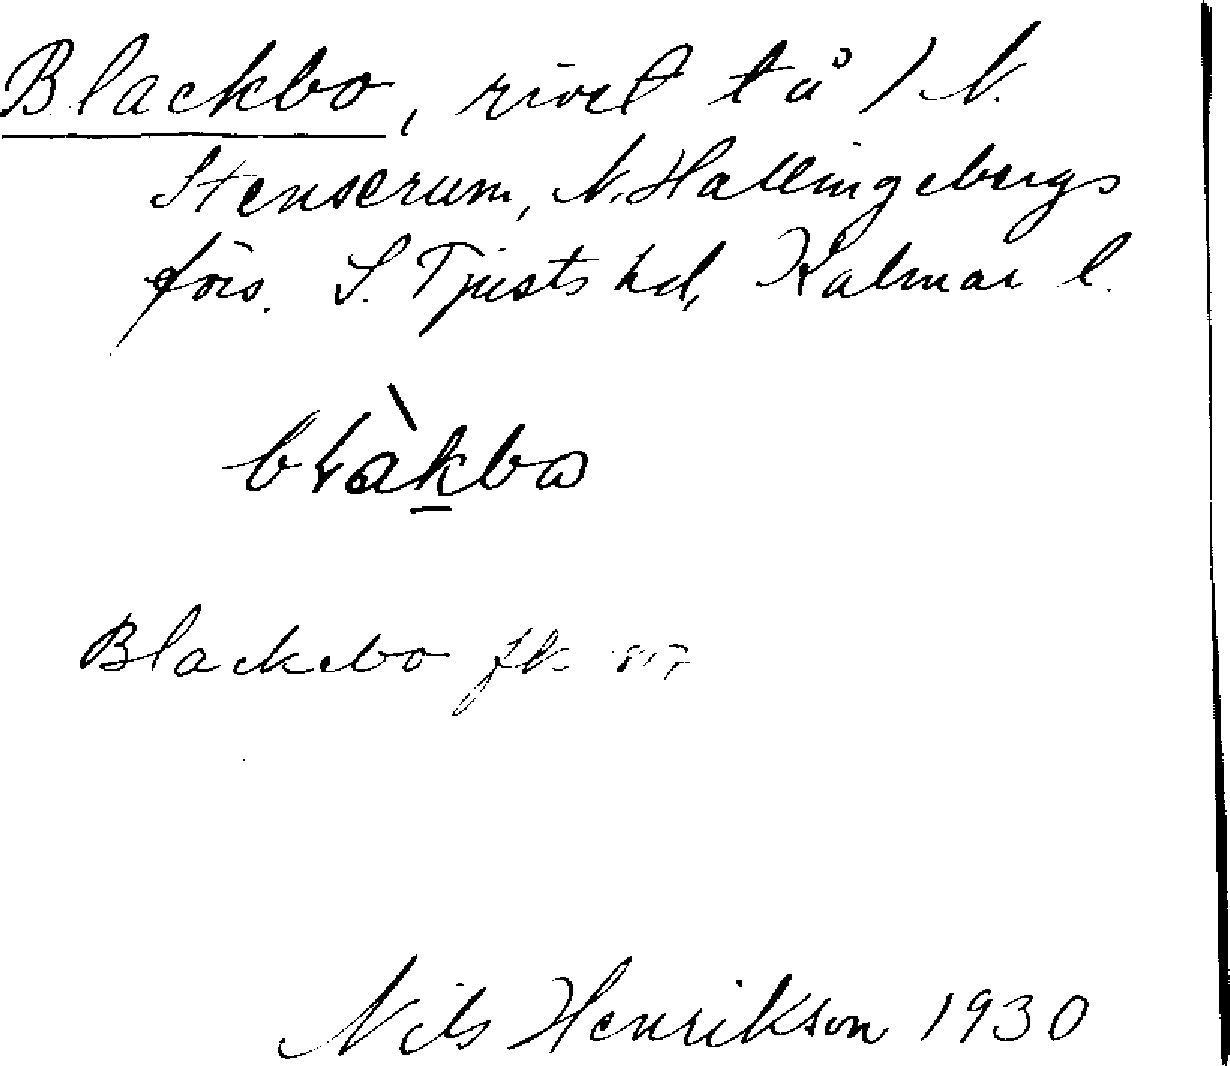 Blackbo, rivet tå / N.
Stenserum, N. Hallingebergs
förs. S. Tjusts hd, Kalmar l.
blàkbo
Blackebo fk 817
Nils Henrikson 1930